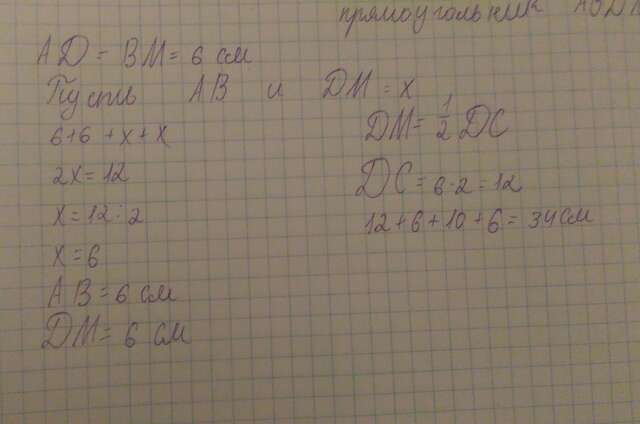 прямоугольник ABDM
AD = BM = 6 см
Пусть AB и DM = x
6+6 + x + x
2x = 12
x = 12 : 2
x = 6
AB = 6 см
DM = 6 см
DM = 1/2 DC
DC = 6 · 2 = 12
12 + 6 + 10 + 6 = 34 см